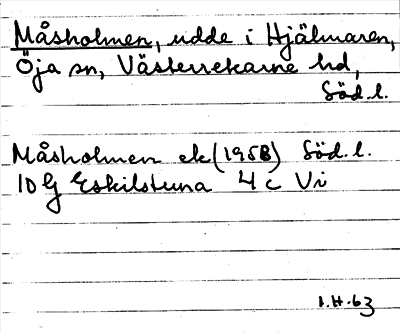 Måsholmen, udde i Hjälmaren,
Öja sn, Västerrekarne hd,
Söd. l.
Måsholmen ek (1958) Söd. l.
10 G Eskilstuna 4 c Vi
I.H.63